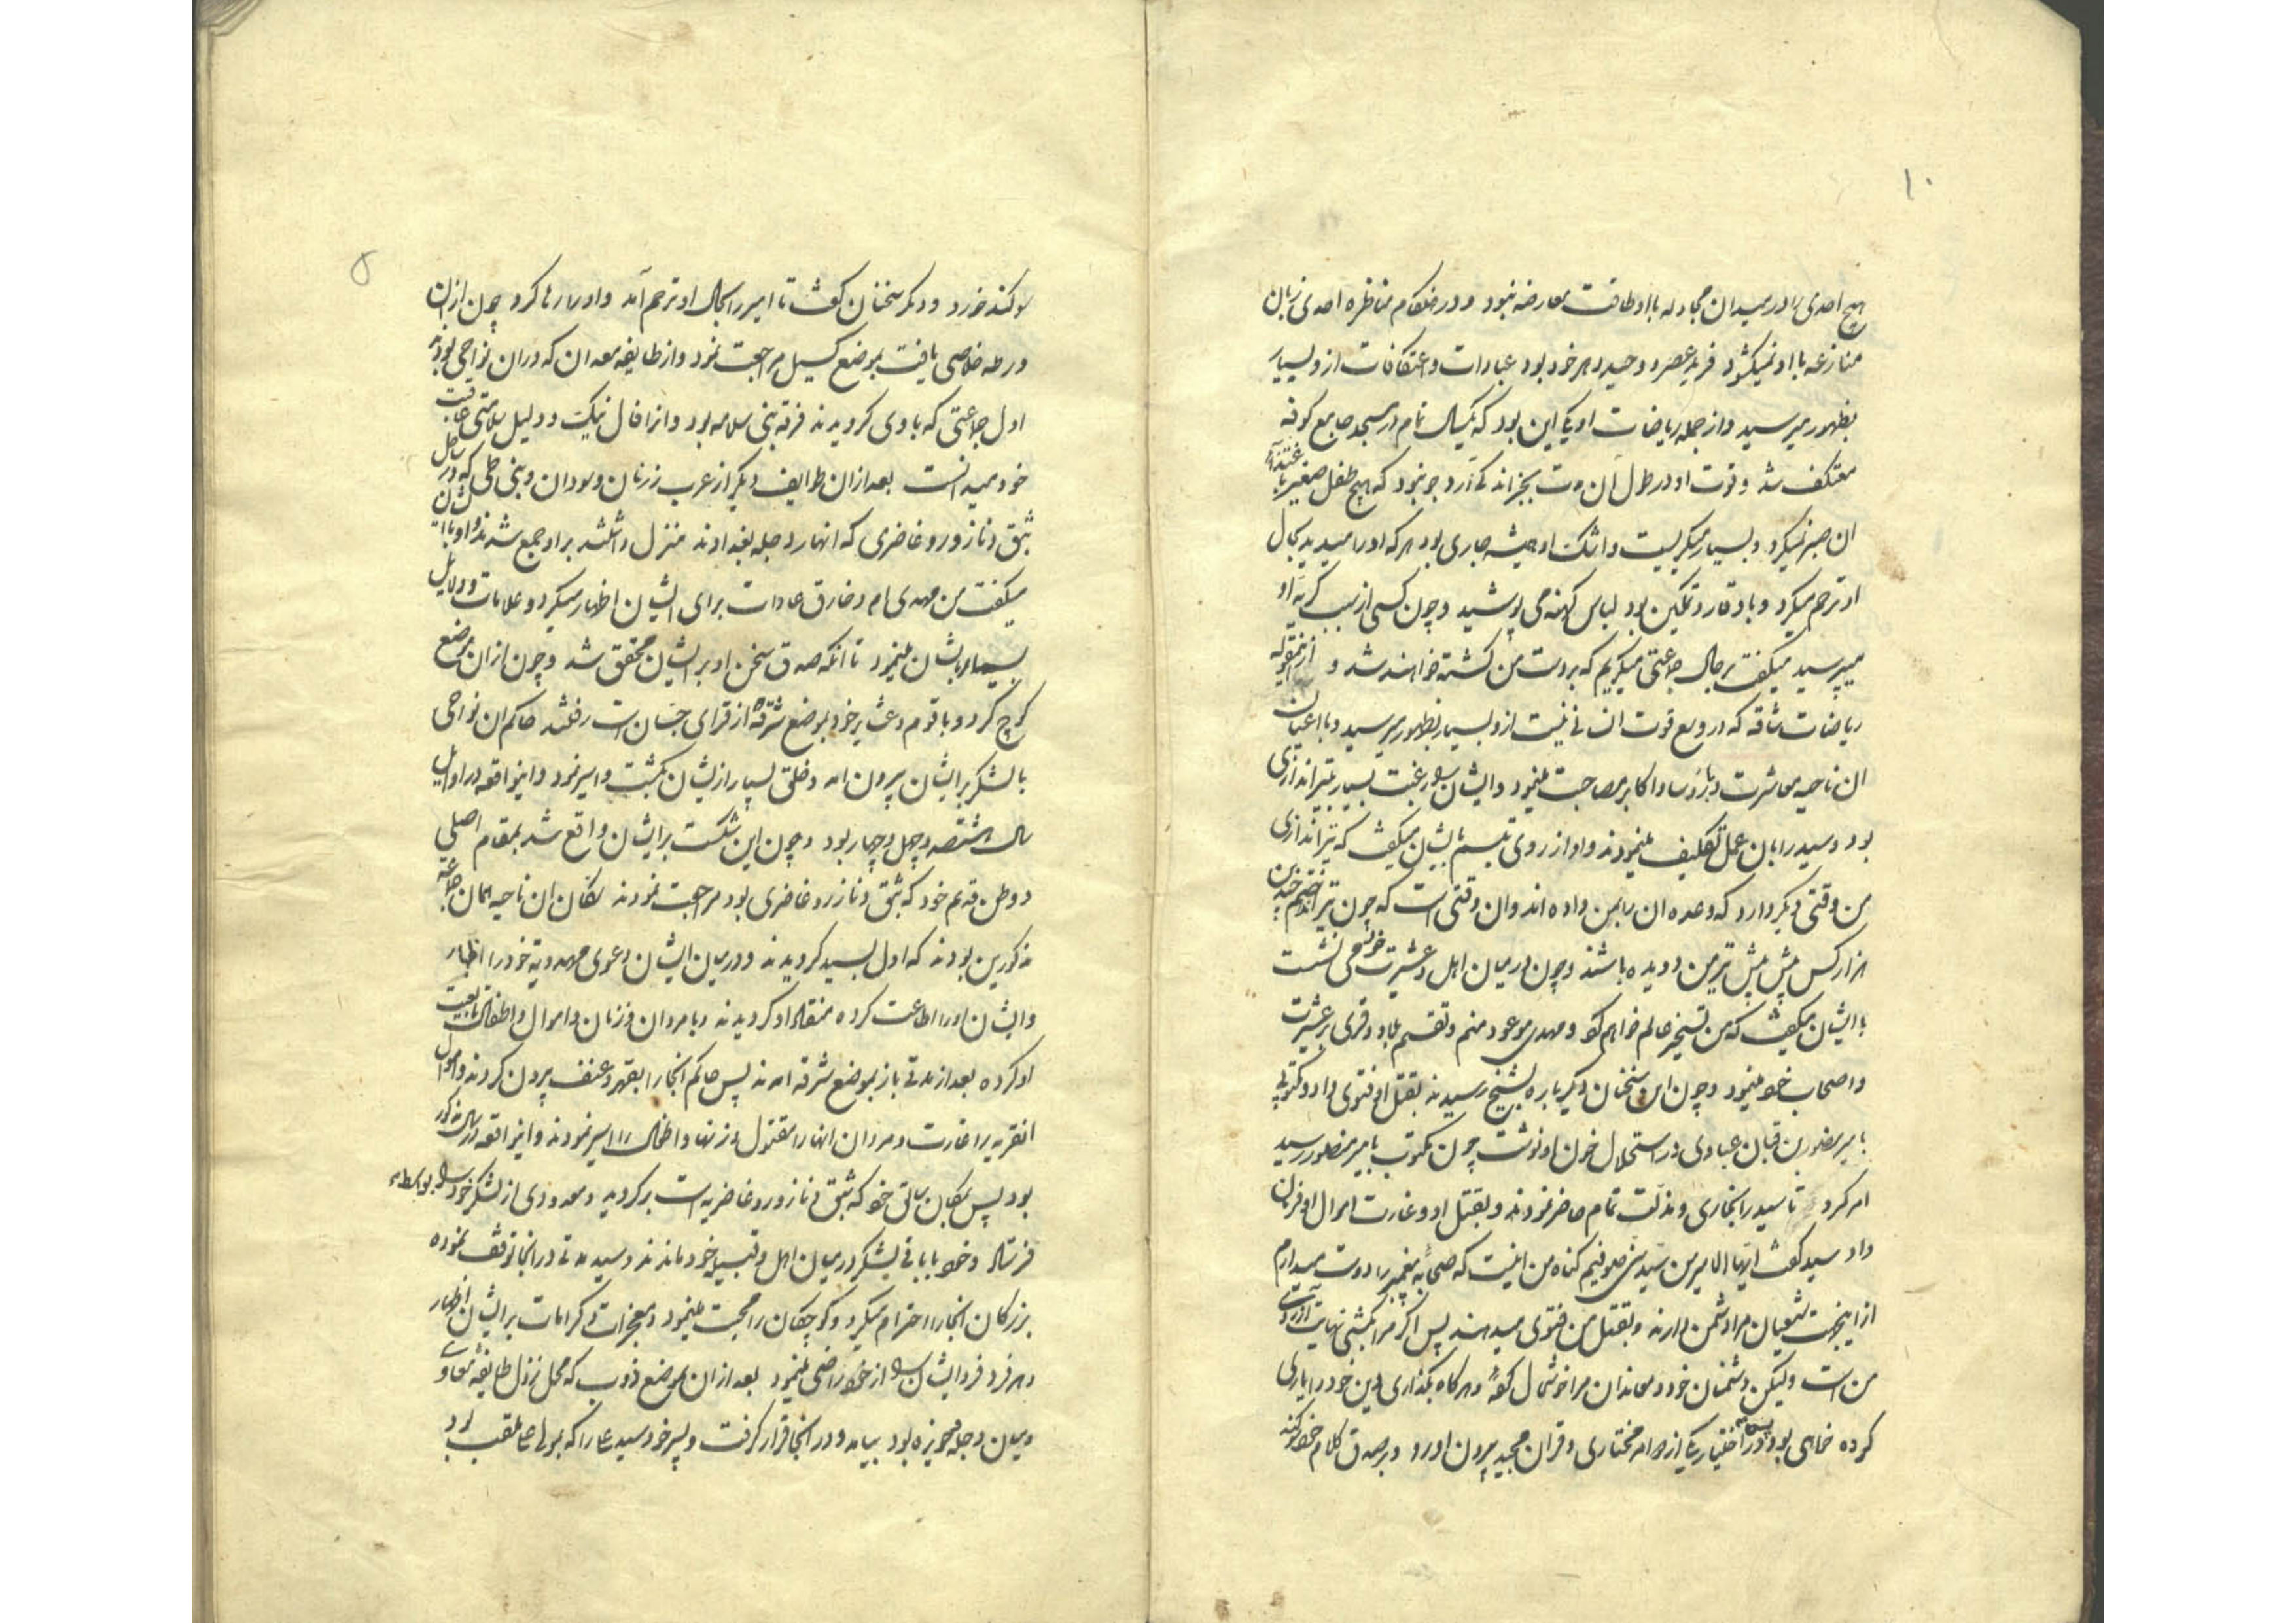 ١٠
هیچ احدی را در میدان مجادله با او طاقت معارضه نبود و در هنکام مناظره احدی زبان
منازعه با او نمیکشود فرید عصر و وحید دهر خود بود عبادات و اعتکافات از و بسیار
بظهور میرسید و از جمله ریاضات او یکی این بود که یکسال تمام در مسجد جامع کوفه
معتکف شد و قوت او در طول آن مدت بجز اندکی آرد جو نبود که هیچ طفل صغیر با
ان صبر نمیکرد و بسیار میکریست و اشک او همیشه جاری بود هر که او را میدید بحال
او ترحم میکرد و با وقار و تمکین بود لباس کهنه می پوشید و چون کسی از سبب کریه او
میپرسید میکفت بر حال جماعتی میکریم که بر دست من کشته خواهند شد و ازینمقوله
ریاضات شاقه که در وسع قوت انسانی نیست از و بسیار بظهور میرسید و با اعیان
ان ناحیه معاشرت و با رؤسا و اکابر مصاحبت مینمود و ایشان را رغبت بسیار بتیراندازی
بود و سید را بان عمل تکلیف مینمودند و او از روی تبسم بایشان میکفت که تیراندازی
من وقتی دیکر دارد که وعده ان را بمن داده اند و ان وقتی است که چون تیر اندازم چندین
هزار کس پیش پیش تیر من دویده باشند و چون در میان اهل و عشیرت خود می نشست
با ایشان میکفت که من تسخیر عالم خواهم کرد و مهدی موعود منم و تقسیم بلاد و قری بر عشیرت
و اصحاب خود مینمود و چون این سخنان دیکر باره بشیخ رسیدند بقتل او فتوی داد و مکتوبی
بامیر منصور بن قبان عبادی در استحلال خون او نوشت چون مکتوب بامیر منصور رسید
امر کرد تا سید را بخواری و مذلت تمام حاضر نمودند و بقتل او و غارت اموال او فرمان
داد سید کفت ایها الامیر من سید سنی صوفیم کناه من اینست که صحابه پیغمبر را دوست میدارم
از اینجهت شیعیان مرا دشمن دارند و بقتل من فتوی میدهند پس اکر مرا بکشی نهایت آرزوی
من است ولیکن دشمنان خود و معاندان مرا خوشحال کنی و هر کاه بکذاری دین خود را یاری
کرده خواهی بود در اختیار یکی از دو امر مختاری و قران مجید بیرون اورد و بر صدق کلام خود
٥
سوکند خورد و دیکر سخنان کفت تا امیر را بحال او ترحم آمد و او را رها کرد چون از ان
ورطه خلاصی یافت بموضع کسیل مراجعت نمود و از طایفه معدان که در ان نواحی بودند
اول جماعتی که با وی کرویدند فرقه بنی سلامه بود و از افال نیک و دلیل سلامتی عاقبت
خود میدانست بعد از ان طوایف دیکر از عرب زرنان و سودان و بنی طی که در ساحل
ثبق و نازور و غاضری که انهار دجله بغدادند منزل داشتند بر او جمع شدند و او با ایشان
میکفت من مهدی ام و خارق عادات برای ایشان اظهار میکرد و علامات و دلایل
بسیار بایشان مینمود تا انکه صدق سخن او بر ایشان محقق شد و چون از ان موضع
کوچ کرد و با قوم و عشایر خود بموضع شرقه از قرای جسان است رفتند حاکم ان نواحی
با لشکر بر ایشان بیرون امد و خلقی بسیار از ایشان بکشت و اسیر نمود و اینواقعه در اوایل
سال هشتصد و چهل و چهار بود و چون این شکست بر ایشان واقع شد بمقام اصلی
و وطن قدیم خود که ثبق و نازور و غاضری بود مراجعت نمودند سکان ان ناحیه همان جماعه
مذکورین بودند که اول بسید کرویدند و در میان ایشان دعوی مهدویة خود را اظهار
و ایشان او را اطاعت کرده منقاد او کردیدند و با مردان و زنان و اموال و اطفال متابعت
او کرده بعد از مدتی باز بموضع شرقه امدند پس حاکم انجا را بقهر و عنف بیرون کردند و اموال
انقریه را غارت و مردان انها را مقتول و زنها و اطفال را اسیر نمودند و اینواقعه در سال مذکور
بود پس بمکان سابق خود که ثبق و نازور و غاضریه است برکردید و معدودی از لشکر خود را بواسطه
فرستاد و خود با باقی لشکر در میان اهل و قبیله خود ماندند و سید مدتی در انجا توقف نموده
بزرکان انجا را احترام میکرد و کوچکان را محبت مینمود و معجزات و کرامات بر ایشان اظهار
و هر فرد فرد ایشان را از خود راضی مینمود بعد از ان بموضع ذوب که محل نزول طایفه معاوی
و میان دجله و حویزه بود بیامد و در انجا قرار کرفت و پسر خود سید علی را که بمولی علی ملقب بود